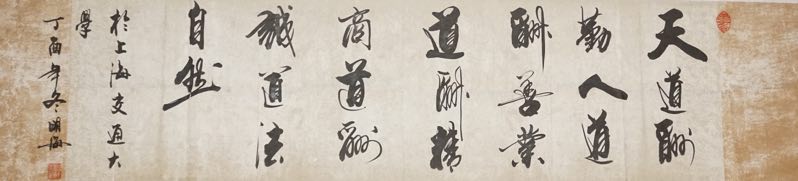 天道酬
勤人道
酬善業
道酬精
商道酬
誠道法
自然
於上海交通大
學
丁酉年冬明海